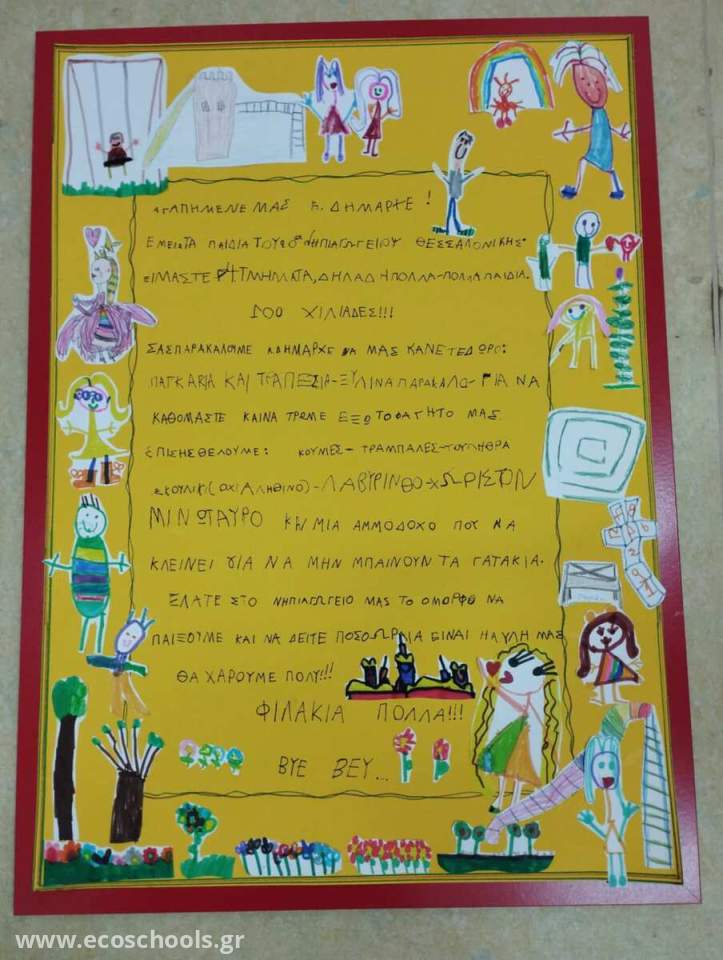 ΑΓΑΠΗΜΕΝΕ ΜΑΣ Κ. ΔΗΜΑΡΧΕ!
ΕΜΕΙΣ ΤΑ ΠΑΙΔΙΑ ΤΟΥ ΝΗΠΙΑΓΩΓΕΙΟΥ ΘΕΣΣΑΛΟΝΙΚΗΣ.
ΕΙΜΑΣΤΕ 4 ΤΜΗΜΑΤΑ, ΔΗΛΑΔΗ ΠΟΛΛΑ-ΠΟΛΛΑ ΠΑΙΔΙΑ.
ΧΙΛΙΑΔΕΣ!!!
ΣΑΣ ΠΑΡΑΚΑΛΟΥΜΕ Κ ΔΗΜΑΡΧΕ ΝΑ ΜΑΣ ΚΑΝΕΤΕ ΔΩΡΟ:
ΠΑΓΚΑΚΙΑ ΚΑΙ ΤΡΑΠΕΣΙΑ-ΞΥΛΙΝΑ ΠΑΡΑΚΑΛΩ-ΓΙΑ ΝΑ
ΚΑΘΟΜΑΣΤΕ ΚΑΙ ΝΑ ΤΡΩΜΕ ΕΞΩ ΤΟ ΦΑΓΗΤΟ ΜΑΣ.
ΕΠΙΣΗΣ ΘΕΛΟΥΜΕ: ΚΟΥΝΙΕΣ-ΤΡΑΜΠΑΛΕΣ-ΤΣΟΥΛΗΘΡΑ
ΣΚΟΥΛΙΚΙ (ΟΧΙ ΑΛΗΘΙΝΟ)-ΛΑΒΥΡΙΝΘΟ-ΧΩΡΙΣ ΤΟΝ
ΜΙΝΩΤΑΥΡΟ ΚΑΙ ΜΙΑ ΑΜΜΟΔΟΧΟ ΠΟΥ ΝΑ
ΚΛΕΙΝΕΙ ΓΙΑ ΝΑ ΜΗΝ ΜΠΑΙΝΟΥΝ ΤΑ ΓΑΤΑΚΙΑ.
ΕΛΑΤΕ ΣΤΟ ΝΗΠΙΑΓΩΓΕΙΟ ΜΑΣ ΤΟ ΟΜΟΡΦΟ ΝΑ
ΠΑΙΞΟΥΜΕ ΚΑΙ ΝΑ ΔΕΙΤΕ ΠΟΣΟ ΩΡΑΙΑ ΕΙΝΑΙ Η ΑΥΛΗ ΜΑΣ
ΘΑ ΧΑΡΟΥΜΕ ΠΟΛΥ!!!
ΦΙΛΑΚΙΑ ΠΟΛΛΑ!!!
BYE BEY...
www.ecoschools.gr